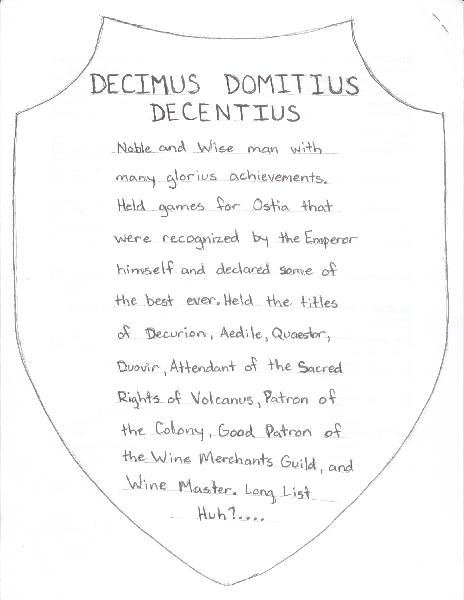 DECIMUS DOMITIUS
DECENTIUS
Noble and Wise man with
many glorius achievements.
Held games for Ostia that
were recognized by the Emperor
himself and declared some of
the best ever. Held the titles
of Decurion, Aedile, Quaestor,
Duovir, Attendant of the Sacred
Rights of Volcanus, Patron of
the Colony, Good Patron of
the Wine Merchants Guild, and
Wine Master. Long List
Huh?....